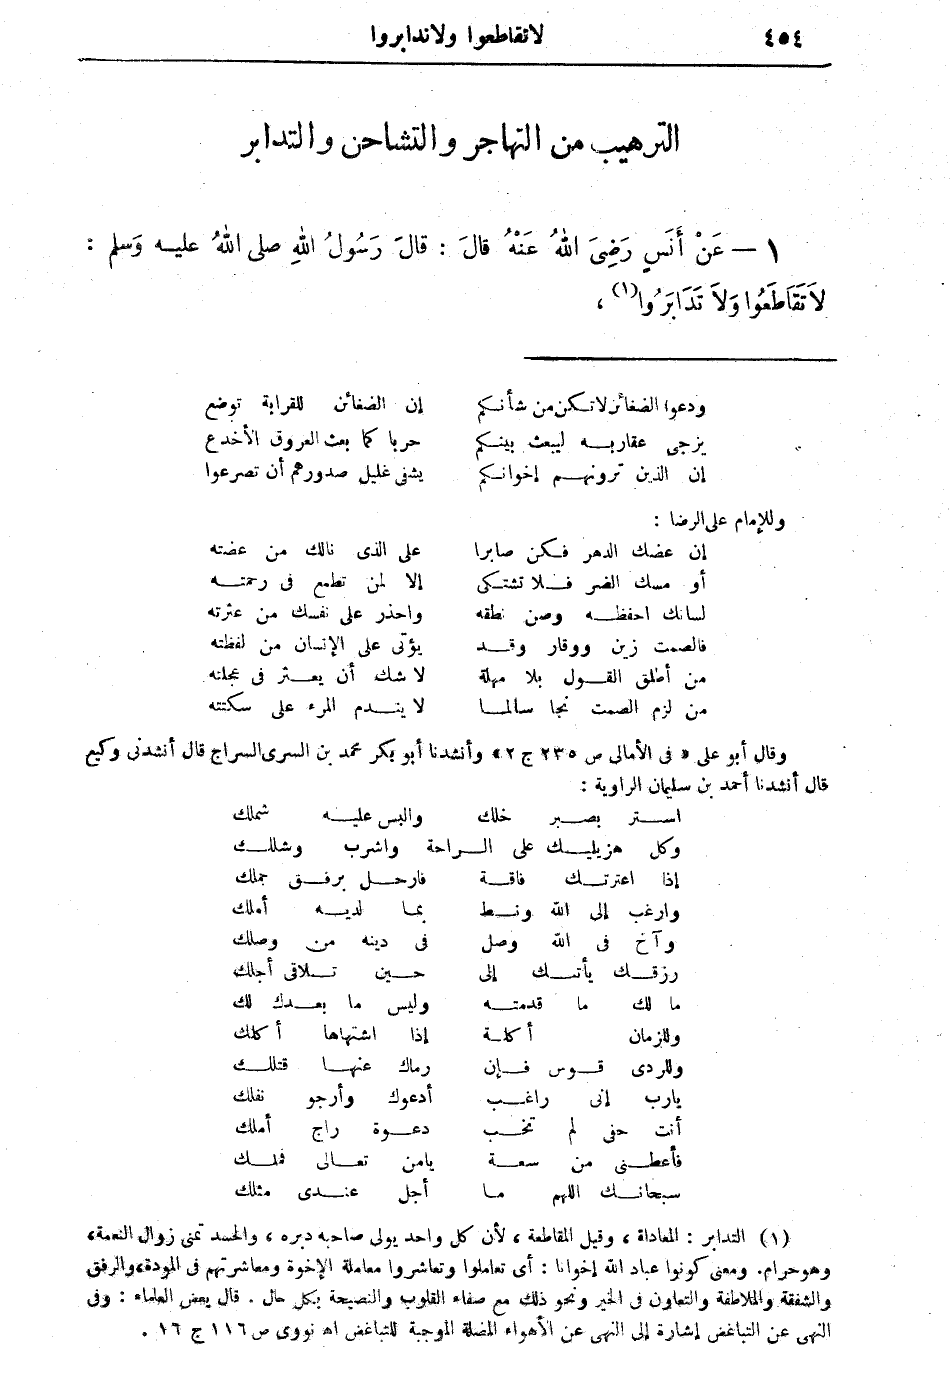 ٤٥٤ لاتقاطعوا ولاتدابروا
الترهيب من التهاجر والتشاحن والتدابر
١ — عَنْ أَنَسٍ رَضِىَ اللهُ عَنْهُ قالَ : قالَ رَسُولُ اللهِ صلى اللهُ عليه وَسلم :
لاَتَقَاطَعُوا وَلاَ تَدَابَرُوا(١) ،
ودعوا الضغائن لاتكن من شأنكم إن الضغائن للقرابة توضع
يزجى عقاربه ليبعث بينكم حربا كما بعث العروق الأخدع
إن الذين ترونهم إخوانكم يشفى غليل صدورهم أن تصرعوا
وللإمام على الرضا :
إن عضك الدهر فكن صابرا على الذى نالك من عضته
أو مسك الضر فلا تشتكى إلا لمن تطمع فى رحمته
لسانك احفظه وصن نطقه واحذر على نفسك من عثرته
فالصمت زين ووقار وقد يؤتى على الإنسان من لفظته
من أطلق القول بلا مهلة لاشك أن يعثر فى عجلته
من لزم الصمت نجا سالما لايندم المرء على سكتته
وقال أبو على « فى الأمالى ص ٢٣٥ ج ٢» وأنشدنا أبو بكر محمد بن السرى السراج قال أنشدنى وكيع
قال أنشدنا أحمد بن سليمان الراوية :
استر بصبر خلك والبس عليه شملك
وكل هزيليك على الراحة واشرب وشلك
إذا اعترتك فاقة فارحل برفق جملك
وارغب إلى الله ونط بما لديه أملك
وآخ فى الله وصل فى دينه من وصلك
رزقك يأتيك إلى حين تلاقى أجلك
ما لك ما قدمته وليس ما بعدك لك
وللزمان أكلة إذا اشتهاها أكلك
وللردى قوس فإن رماك عنها قتلك
يارب إنى راغب أدعوك وأرجو نفلك
أنت حفى لم تخب دعوة راج أملك
فأعطنى من سعة يامن تعالى فملك
سبحانك اللهم ما أجل عندى مثلك
(١) التدابر : المعاداة ، وقيل المقاطعة ، لأن كل واحد يولى صاحبه دبره ، والحسد تمنى زوال النعمة،
وهوحرام. ومعنى كونوا عباد الله إخوانا : أى تعاملوا وتعاشروا معاملة الإخوة ومعاشرتهم فى المودة، والرفق
والشفقة والملاطفة والتعاون فى الخير ونحو ذلك مع صفاء القلوب والنصيحة بكل حال . قال بعض العلماء : وفى
النهى عن التباغض إشارة إلى النهى عن الأهواء المضلة الموجبة للتباغض اه نووى ص ١١٦ ج ١٦ .